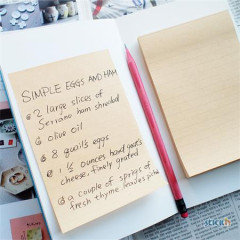 SIMPLE EGGS AND HAM
2 large slices of
Serrano ham shredded
olive oil
8 quail's eggs
1 1/2 ounces hard goat's
cheese, finely grated
a couple of sprigs of
fresh thyme, leaves picked